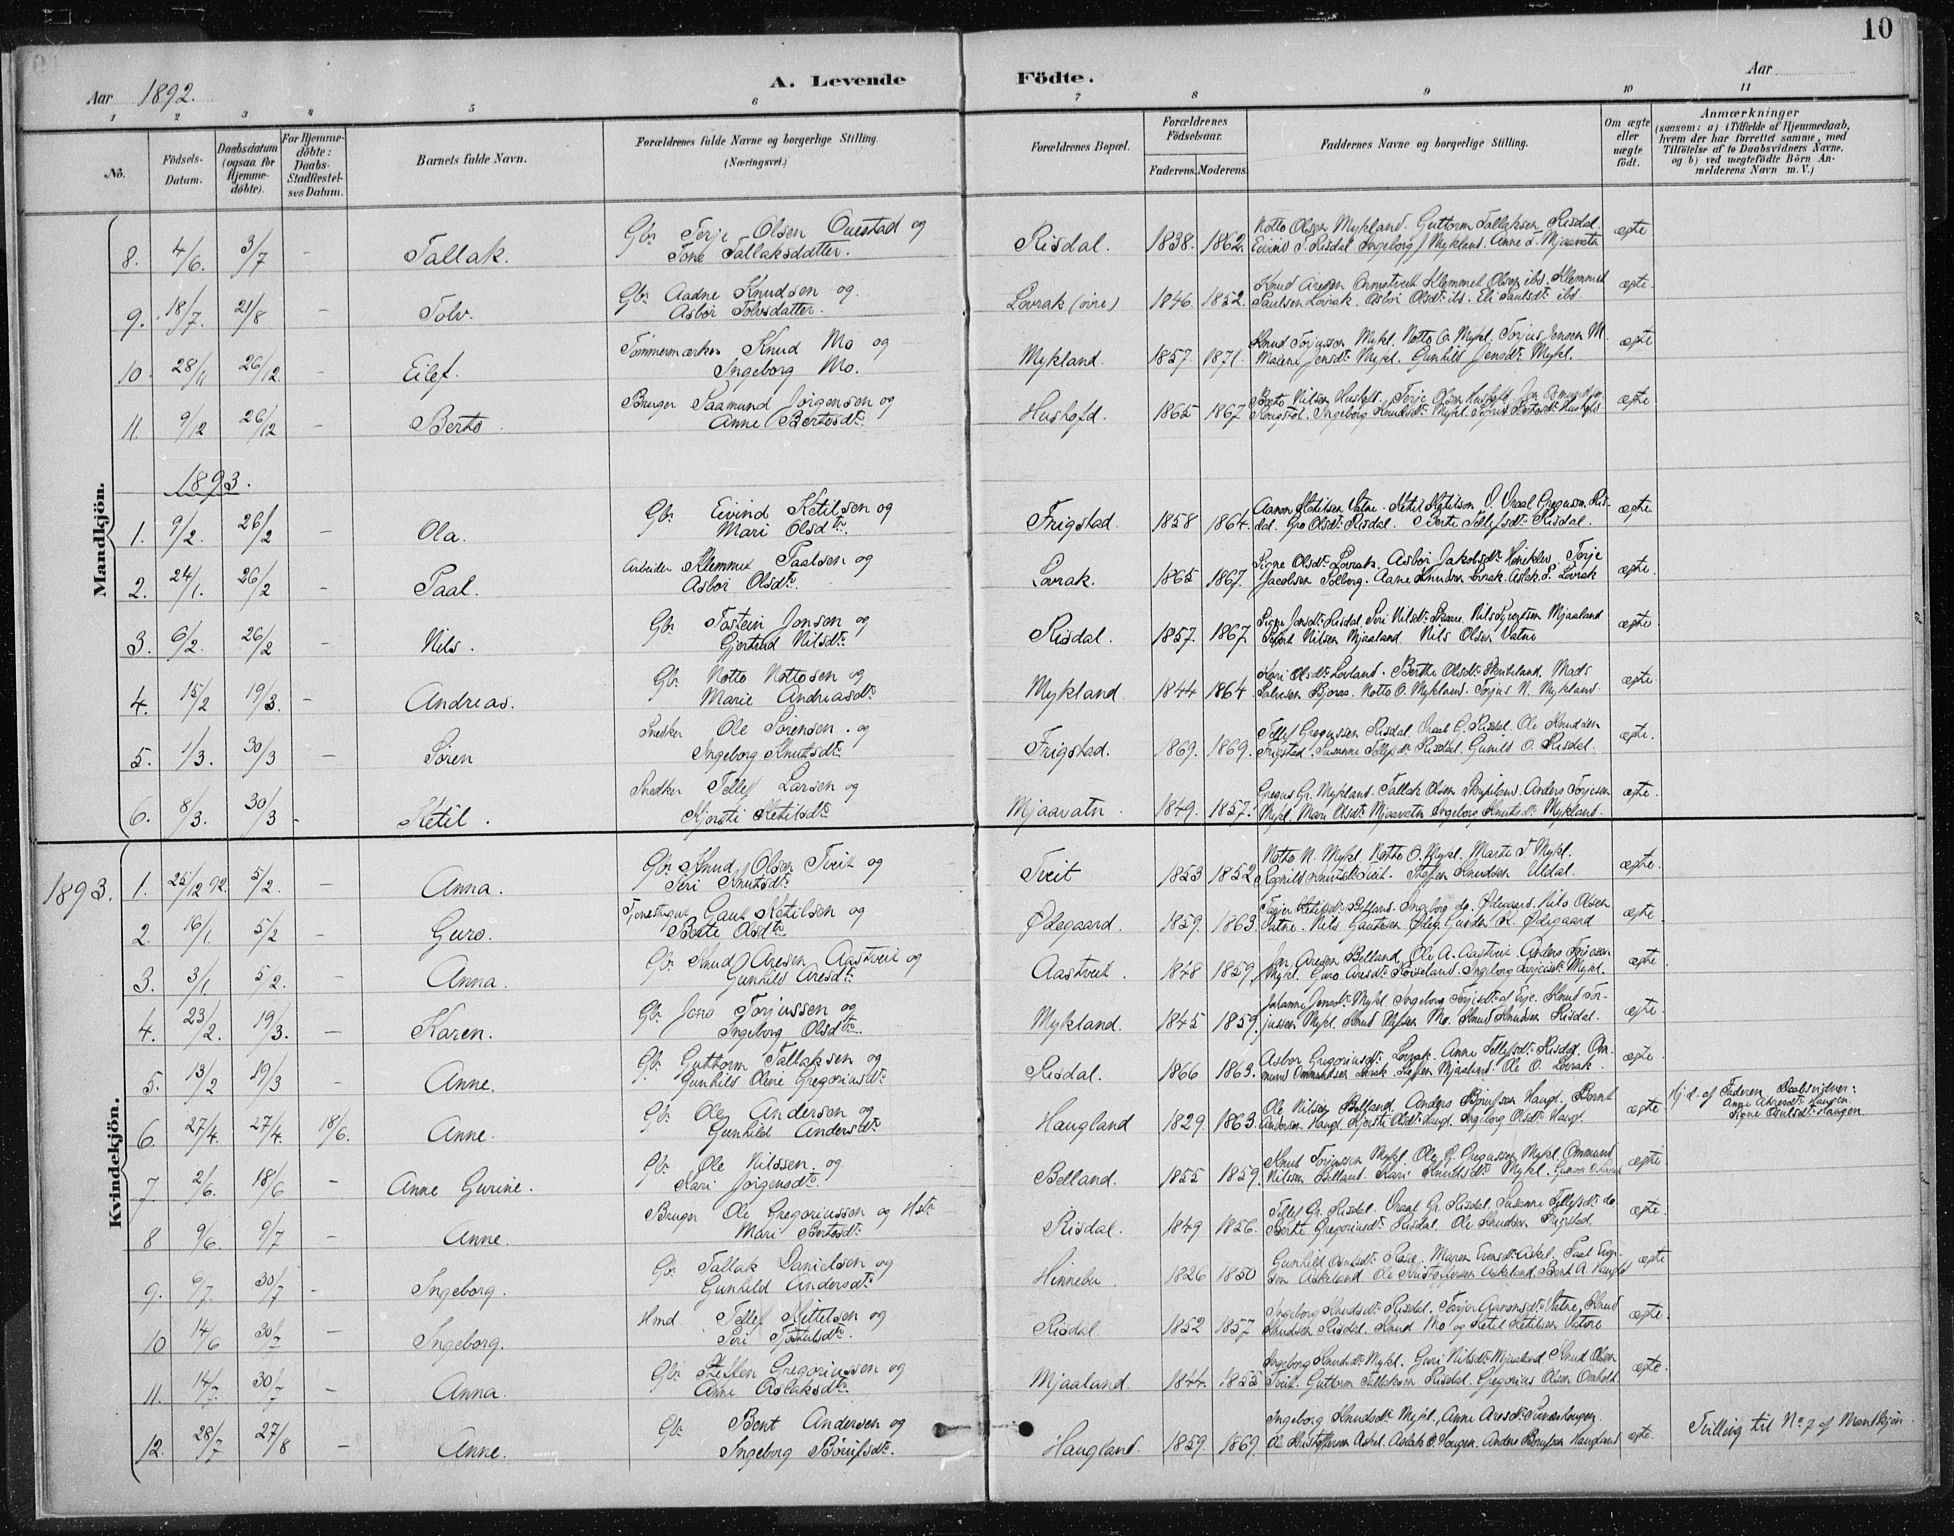 10
Aar 1892.
A. Levende Födte.
Aar
1 2 3 4 5 6 7 8 9 10 11
No.
Födsels-Datum.
Daabsdatum (ogsaa for Hjemme-döbte).
For Hjemme-döbte: Daabs-Stadfæstel-ses Datum.
Barnets fulde Navn.
Forældrenes fulde Navne og borgerlige Stilling (Næringsvei.)
Forældrenes Bopæl.
Forældrenes Födselsaar.
Faderens. Moderens.
Faddernes Navne og borgerlige Stilling.
Om ægte eller uægte født.
Anmærkninger
(saasom: a) i Tilfælde af Hjemmedaab, hvem der har forrettet samme, med Tilföielse af to Daabsvidners Navne, og b) ved uegtefödte Börn An-melderens Navn m. V.)
Mandkjön.
8. 4/6. 3/7 - Tallak. Gbr Terje Olsen Ouestad og Tone Tallaksdatter. Risdal. 1838. 1862. Notto Olsen Mykland. Guttorm Tallaksen Risdal. Eivind T. Risdal Ingeborg J Mykland. Anne S. Mjaavatn ægte
9. 18/7. 21/8 - Tolv. Gbr Aadne Knudsen og Asbor Tolvsdatter. Lovrak (øvre) 1846. 1852. Klemmet Olsen ibd. Klemmet Paulsen Lovrak. Asbor Olsdtr ibd. Eli Paulsdtr ibd. ægte.
10. 28/11 26/12. - Eilef. Tømmermærker Knud Mo og Ingeborg Mo. Mykland. 1857. 1871. Knud Torjussen Mykl. Notto O. Mykl. Torjus Jensen M. Malene Jensdtr Mykl. Gunhild Jensdtr Mykl. ægte
11. 9/12 26/12 - Berto. Bruger Saamund Jørgensen og Anne Bertosdtr. Hushofd. 1865 1867 Berto Nilsen Hushofd. Terje Olsen Hushofd. Ingeborg Knudsdtr Mykl. ægte
1893.
1. 9/2. 26/2 - Ola. Gbr Eivind Ketilsen og Mari Olsdtr. Frigstad. 1858 1864. Aanon Ketilsen Vatne. Ketil Ketilsen Gro Olsdtr Risdal. Berte Tellefsdtr Risdal. ægte.
2. 24/1. 26/2 - Paal. Arbeider Klemmet Paalsen og Asbor Olsdtr. Lovrak. 1865 1867. Signe Olsdtr Lovrak. Asbor Jakobsdtr Torje Jacobsen Solberg. Aane Knudsen Lovrak. Aslak P. Lovrak ægte.
3. 6/2. 26/2 - Nils. Gbr Tostein Jonsen og Gjertrud Nilsdtr. Risdal. 1857. 1867. Signe Jonsdtr Risdal Siri Nilsdtr Skaare Nils Mjaaland Nilsen Mjaaland Nils Olsen Vatne ægte.
4. 15/2 19/3. - Andreas. Gbr Notto Nottosen og Marie Andreasdtr Mykland. 1844 1864 Kari Olsdtr Lovland. Berthe Olsdtr Mads Notto O. Mykland. Torjus N. Mykland. ægte.
5. 1/3. 30/3 - Søren Snedker Ole Sørensen. og Ingeborg Knutsdtr Frigstad. 1869. 1869. Tellef Gregussen Risdal. Draal G. Risdal. Ole Knudsen Frigstad. Susanne Tellefsdtr Risdal. Gunild O. Risdal. ægte.
6. 8/3. 30/3 - Ketil. Snedker Tellef Larsen og Kjersti Ketilsdtr Mjaavatn. 1849. 1857. Gregus Gr. Mykland. Tallak Olsen Anders Terjesen Mykl. Mari Olsdtr Mjaavatn Ingeborg Knutsdtr Mykland. ægte.
Kvindekjön.
1893. 1. 25/12 92. 5/2. - Anna. Gbr Knud Olsen Tveit og Siri Knutsdtr Tveit 1853 1852 Notto N. Mykl. Notto O. Mykl. Marte T Mykl. Ragnild Knutsdtr Tveit. Steffen Knudsen Uldal. ægte.
2. 16/1. 5/2 - Guro. Tjenestegut Gaut Ketilsen og Berte Olsdtr Ødegaard. 1859. 1863. Ingeborg do. Ødegaard. Nils Olsen Vatne. Nils Gautesen Ødeg. Gunder K. Ødegaard ægte
3. 3/1. 5/2. - Anna. Gbr Knud Aresen Aastveit og Gunhild Aresdtr. Aastveit. 1848 1859. Jon Aresen Belland. Ole A. Aastveit. Anders Terjesen Mykl. Guro Aresdtr Ingeborg Terjesdtr Mykl. ægte
4. 23/2. 19/3. - Karen. Gbr Jens Torjussen og Ingeborg Olsdtr. Mykland. 1845 1859. Johanne Jensdtr Mykl. Ingeborg Knud Tor-jussen Mykl. Knud Mo. Knud Knudsen Risdal. ægte.
5. 13/2 19/3 - Anne. Gbr Guttorm Tallaksen og Gunhild Oline Gregoriusdtr Risdal. 1866 1863. Asbor Gregoriusdtr Lovrak. Anne Tellefsdtr Risdal. Om-mund Ommundsen Lovrak Steffen Mjaaland. Ole O. Lovrak. ægte.
6. 27/4. 27/4. 18/6. Anne. Gbr Ole Andersen og Gunhild Andersdtr Haugland 1829. 1863. Ole Nilsen Belland. Anders Haugl. Bernt Andersen Haugl. Kjersti Olsdtr Haugl. Ingeborg Olsdtr Haugl. ægte Hj. d. af Faderen. Daabsvidner: Anne Haugen. Signe Knutsdtr Haugen
7. 2/6. 18/6 - Anne Gurine. Gbr Ole Nilssen. og Kari Jørgensdtr. Belland. 1855 1859. Knut Torjussen Mykl. Ole G. Gregussen Mykl. Ommund Nilssen Belland. Kari Knudsdtr Mykl. ægte.
8 9/6. 9/7 - Anne. Bruger Ole Gregoriussen og Hstr Mari Bertosdtr. Risdal. 1849 1856. Tellef Gr. Risdal. Draal Gr. Risdal. Susanne Tellefsdtr do. Berte Gregoriusdtr Risdal. Ole Knudsen Frigstad. ægte.
9. 6/7. 30/7 - Ingeborg. Gbr Tallak Danielsen og Gunhild Andersdtr Hinnebu 1826 1850 Gunhild Maren Paal Askeland Ole Kristoffersen Askeland. Bent A. Haugld ægte
10 14/6 30/7 - Ingeborg. Hmd. Tellef Kittelsen og Siri Risdal 1852 1857 Ingeborg Knudsdtr Risdal. Torjer Aanonsdtr Vatne, Knud Knudsen Risdal. Knud Mo og Ketil Ketilsen Vatne ægte.
11. 14/7. 30/7 - Anna. Gbr Steffen Gregoriussen og Anne Aslaksdtr. Mjaaland. 1844. 1855 Ingeborg Knudsdtr Mykl. Guri Nilsdtr Mjaaland Knud Olsen Tveit. Guttorm Tallaksen Risdal. Gregorius Olsen Omholt ægte.
12. 28/7 27/8 - Anne. Gbr Bent Andersen og Ingeborg Haugland. 1859. 1869. Ingeborg Knudsdtr Mykl. Anne Aresdtr Ole Kristoffersen Askel. Aslak O. Haugen. Anders Haugland ægte. Tvilling til No 7 af Mandkjøn.